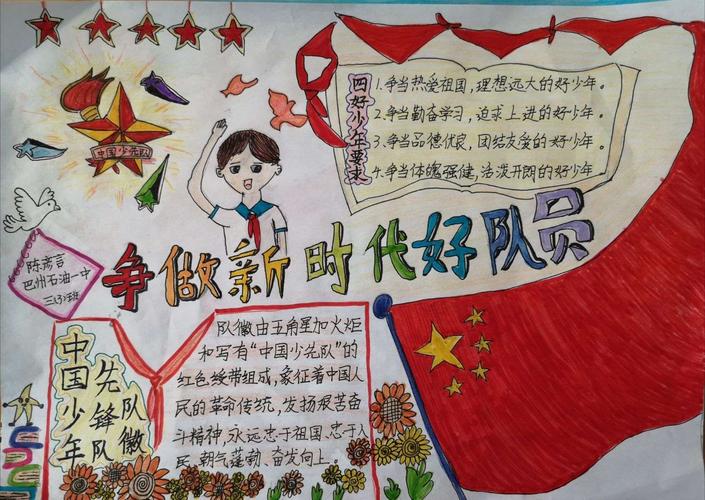 四好少年要求
1.争当热爱祖国，理想远大的好少年。
2.争当勤奋学习，追求上进的好少年。
3.争当品德优良，团结友爱的好少年。
4.争当体魄强健，活泼开朗的好少年。
中国少先队
争做新时代好队员
陈彦言
巴州石油一中
三(3)班
中国少年
先锋队
队徽
队徽由五角星加火炬
和写有“中国少先队”的
红色绶带组成，象征着中国人
民的革命传统，发扬艰苦奋
斗精神，永远忠于祖国、忠于人
民、朝气蓬勃、奋发向上。